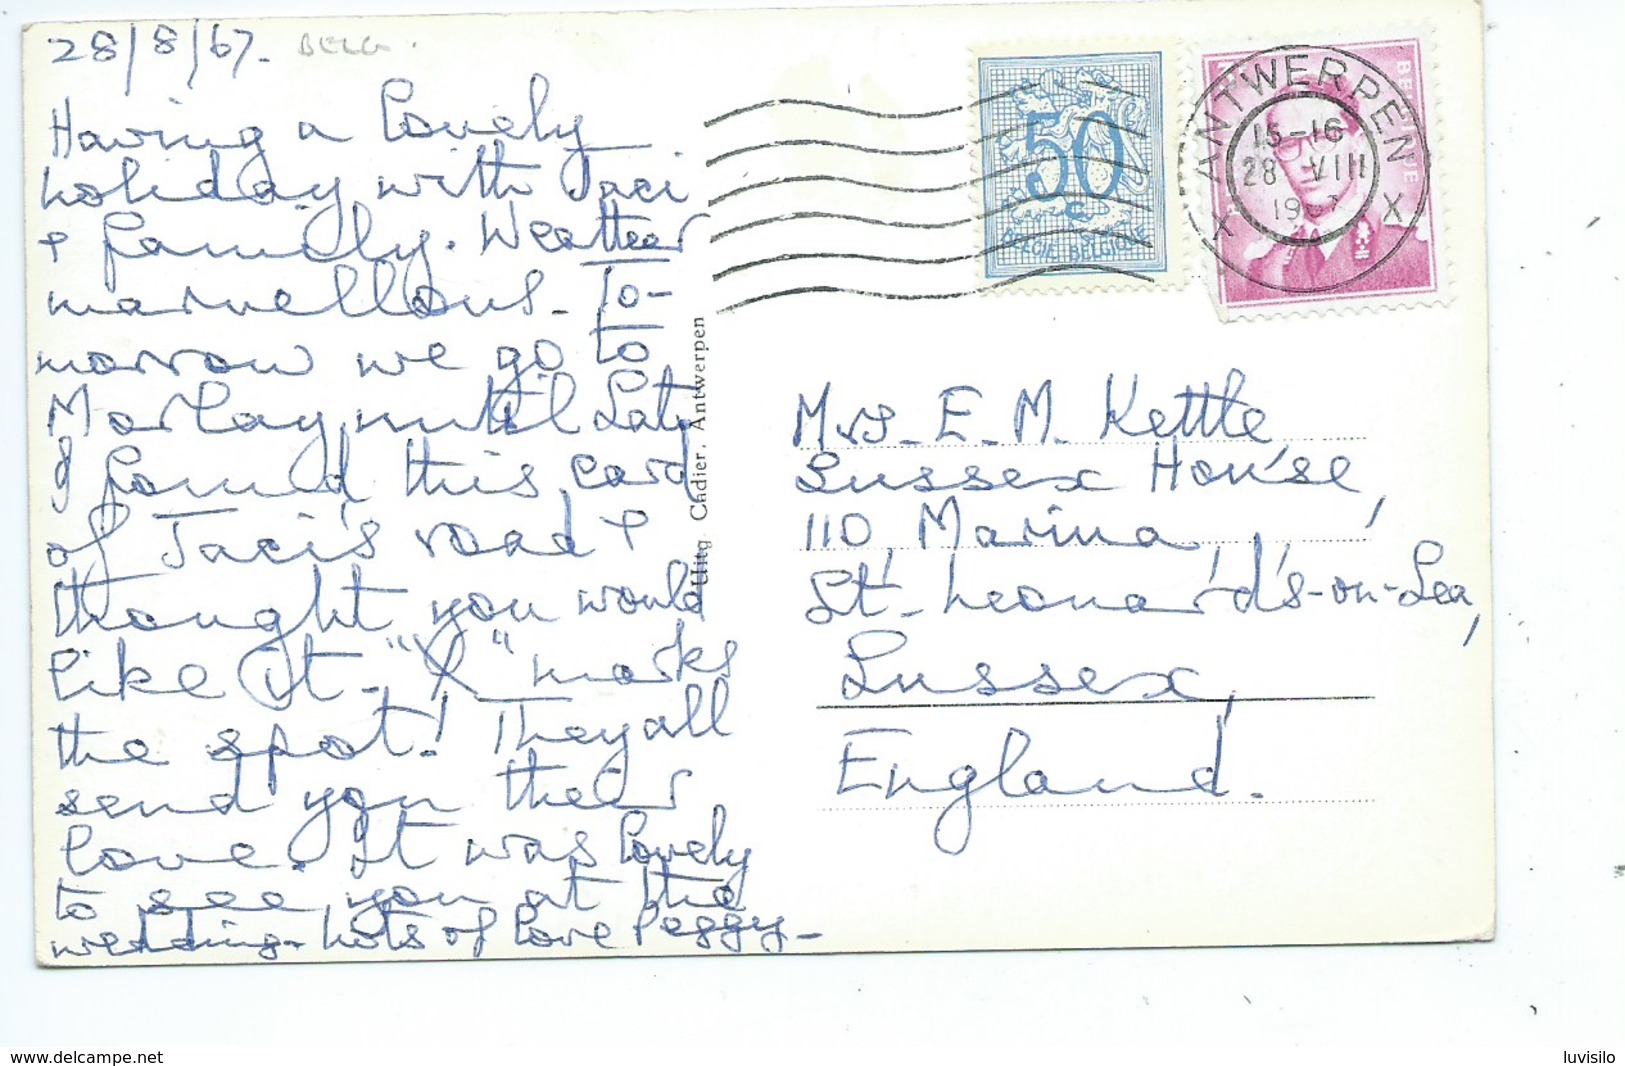 28/8/67. BELG.
Having a lovely
holiday with Jaci
+ family. Weather
marvellous. To-
morrow we go to
Mortsay until Sat,
I found this card
of Jaci's road +
thought you would
like it. "X" marks
the spot! They all
send you their
love. It was lovely
to see you at the
wedding. Lots of love Peggy
Uitg Cadier, Antwerpen
50
BELGIE BELGIQUE
ANTWERPEN
15-16
28 VIII
X X
Mrs. E. M. Kettle,
Sussex House,
110, Marina,
St. Leonard's-on-Sea,
Sussex,
England.
www.delcampe.net
luvisilo